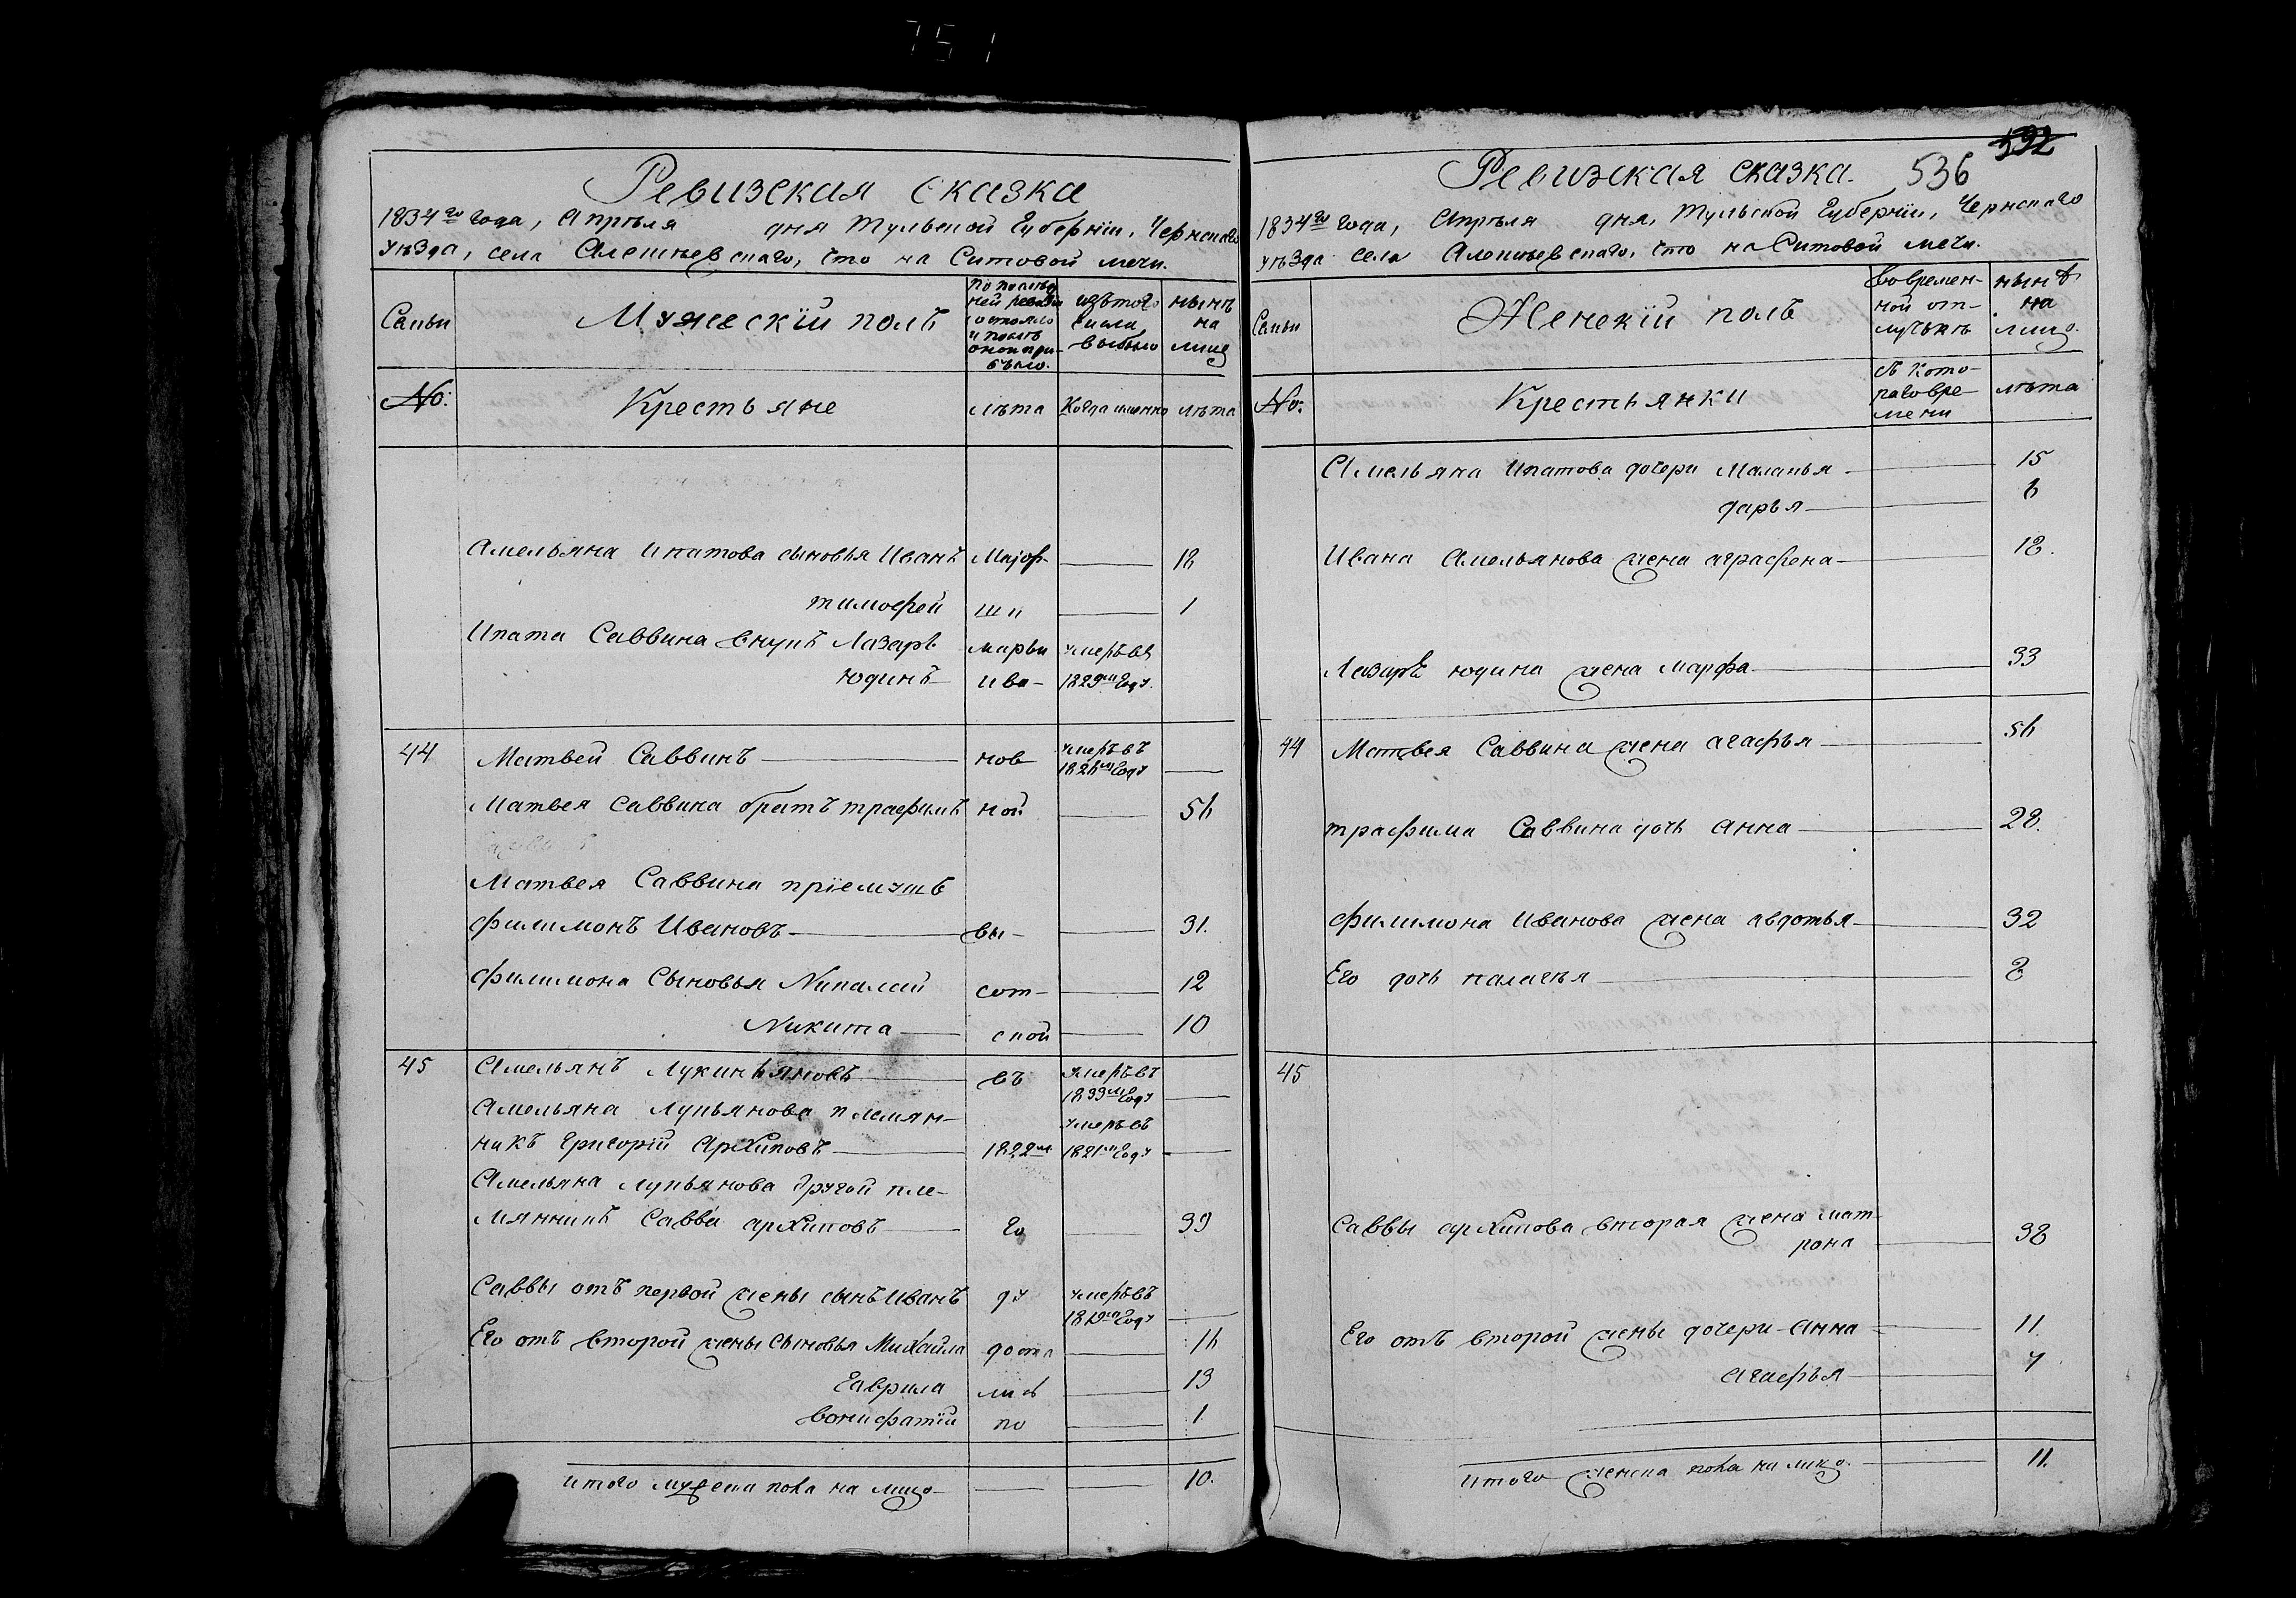 751
Ревизская сказка
1834го года, Апрѣля дня Тульской Губернїи, Чернскаго
уѣзда, села Алешневскаго, что на Ситовой мечи.
Мужескїй полъ
изътого числа, выбыло
нынѣ на лицо
No:
Крестьяне
лѣта
Когда именно
лѣта
Амельяна Ипатова сыновья Иванъ Маіор- 18
тимофей ши 1
Ипата Саввина внукъ Лазарь марьи умеръвъ
юдинъ ива- 1829мъ Году.
44 Матвей Саввинъ нов умеръвъ
Матвея Саввина братъ трафимъ ной
Матвея Саввина прїемышъ
филимонъ Ивановъ вы- 31.
филимона Сыновья Николай сот- 12
Никита ской 10
45 Амельянъ Лукинъяновъ въ умеръвъ
1833мъ Году
Амельяна Лукьянова племян- умеръвъ
никъ Григорїй Архиповъ 1822мъ 1821мъ Году
Амельяна Лукьянова другой пле-
мянникъ Савва архиповъ го 39
Саввы отъ первой жены сынъ Иванъ ду умеръвъ
Его отъ второй жены Сыновья Михайла доста
Гаврила лись 13
Вонифатїй по 1.
итого мужеска пола на лицо 10.
592
Ревизская сказка. 536
1834го года, Апрѣля дня, Тульской Губернїи, Чернскаго
уѣзда села Алешневскаго, что на Ситовой мечи.
Женскїй полъ
Вовремен-
ной от-
лучкѣ
нынѣ
на
лицо.
No:
Крестьянки
съ Кото-
раговре-
мени
лѣта
Амельяна Ипатова дочери Маланья 15
дарья 6
Ивана Амельянова жена аграфена 18.
Лазаря юдина жена марфа 33
44 Матвея Саввина жена агафья 56
трафима Саввина дочь анна 28.
филимона Иванова жена авдотья 32
Его дочь палагья 8
45
Саввы архипова вторая жена мат-
рона 38
Его отъ второй жены дочери Анна 11.
агафья 7
итого женска пола на лицо. 11.